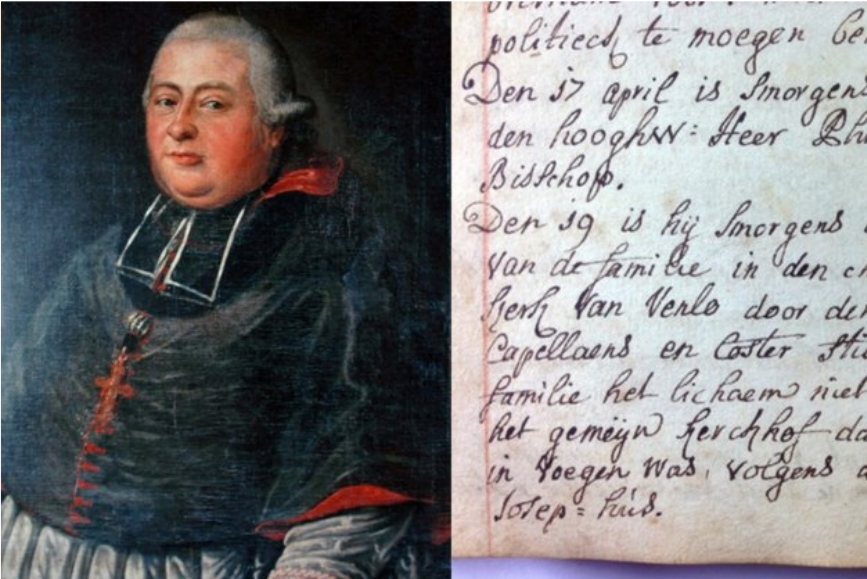 politiech te moegen
Den 17 april is smorgens
den hooghw: Heer
Bisschop.
Den 19 is hij smorgens
van de familie in den
kerk van Venlo door
Capellaens en Coster
familie het lichaem
het gemeijn kerchhof
in voegen was, volgens
Josep= huis.